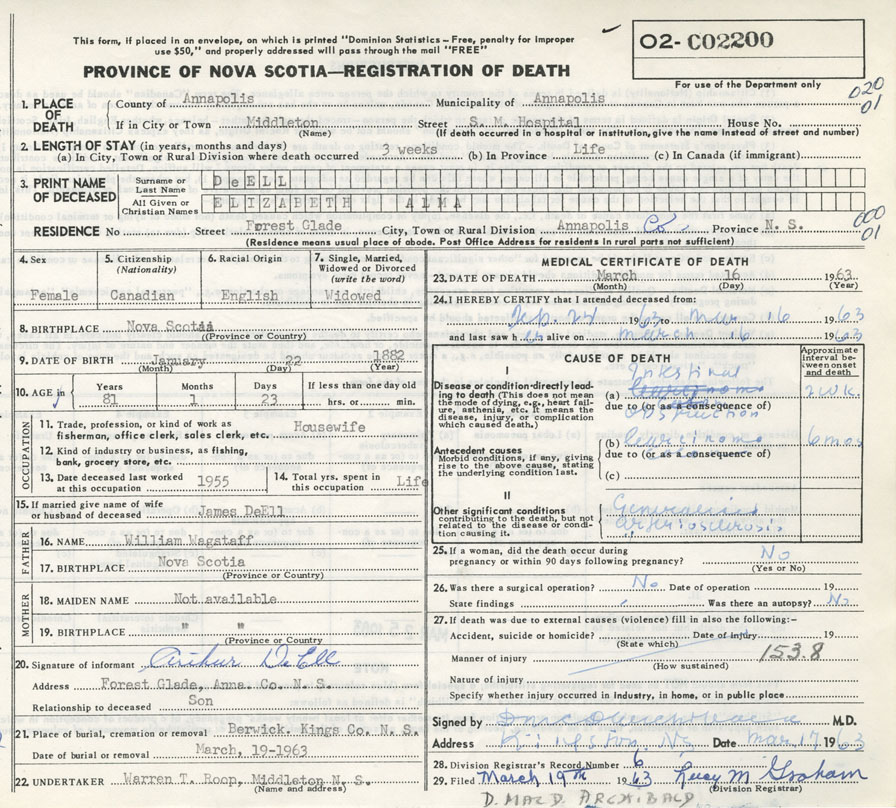 This form, if placed in an envelope, on which is printed "Dominion Statistics - Free, penalty for improper
use $50," and properly addressed will pass through the mail "FREE"
O2- C02200
PROVINCE OF NOVA SCOTIA—REGISTRATION OF DEATH
For use of the Department only
020
01
1. PLACE OF DEATH County of Annapolis Municipality of Annapolis
If in City or Town Middleton (Name) Street S. M. Hospital House No.
(If death occurred in a hospital or institution, give the name instead of street and number)
2. LENGTH OF STAY (in years, months and days)
(a) In City, Town or Rural Division where death occurred 3 weeks (b) In Province Life (c) In Canada (if immigrant)
3. PRINT NAME OF DECEASED Surname or Last Name DeELL
All Given or Christian Names ELIZABETH ALMA
RESIDENCE No Street Forest Glade City, Town or Rural Division Annapolis Co. Province N. S.
000
01
(Residence means usual place of abode. Post Office Address for residents in rural parts not sufficient)
4. Sex Female
5. Citizenship (Nationality) Canadian
6. Racial Origin English
7. Single, Married, Widowed or Divorced (write the word) Widowed
8. BIRTHPLACE Nova Scotia
(Province or Country)
9. DATE OF BIRTH January 22 1882
(Month) (Day) (Year)
10. AGE in Years 81 Months 1 Days 23 If less than one day old hrs. or min.
OCCUPATION
11. Trade, profession, or kind of work as fisherman, office clerk, sales clerk, etc. Housewife
12. Kind of industry or business, as fishing, bank, grocery store, etc.
13. Date deceased last worked at this occupation 1955
14. Total yrs. spent in this occupation Life
15. If married give name of wife or husband of deceased James DeEll
FATHER
16. NAME William Wagstaff
17. BIRTHPLACE Nova Scotia
(Province or Country)
MOTHER
18. MAIDEN NAME Not available
19. BIRTHPLACE " "
(Province or Country
20. Signature of informant Arthur DeEll
Address Forest Glade, Anna. Co. N. S.
Relationship to deceased Son
21. Place of burial, cremation or removal Berwick. Kings Co. N. S.
Date of burial or removal March, 19-1963
22. UNDERTAKER Warren T. Roop, Middleton N. S.
(Name and address)
MEDICAL CERTIFICATE OF DEATH
23. DATE OF DEATH March 16 1963
(Month) (Day) (Year)
24. I HEREBY CERTIFY that I attended deceased from:
Feb. 24 1963 to Mar 16 1963
and last saw h er alive on March 16 1963
CAUSE OF DEATH
Approximate interval between onset and death
I
Disease or condition directly leading to death (This does not mean the mode of dying, e.g., heart failure, asthenia, etc. It means the disease, injury, or complication which caused death.)
(a) Intestinal obstruction 2 wk.
due to (or as a consequence of)
Antecedent causes
Morbid conditions, if any, giving rise to the above cause, stating the underlying condition last.
(b) Carcinoma 6 mos
due to (or as a consequence of)
(c)
II
Other significant conditions
contributing to the death, but not related to the disease or condition causing it.
Generalized
arteriosclerosis
25. If a woman, did the death occur during
pregnancy or within 90 days following pregnancy? No
(Yes or No)
26. Was there a surgical operation? No Date of operation 19
State findings Was there an autopsy? No
27. If death was due to external causes (violence) fill in also the following:-
Accident, suicide or homicide? Date of injury 19
(State which)
Manner of injury 153.8
(How sustained)
Nature of injury
Specify whether injury occurred in industry, in home, or in public place
Signed by M.D.
Address Kingston, NS Date Mar 17 1963
28. Division Registrar's Record Number 6
29. Filed March 19th 1963 Lucy M Graham
(Division Registrar)
D. MacD. ARCHIBALD